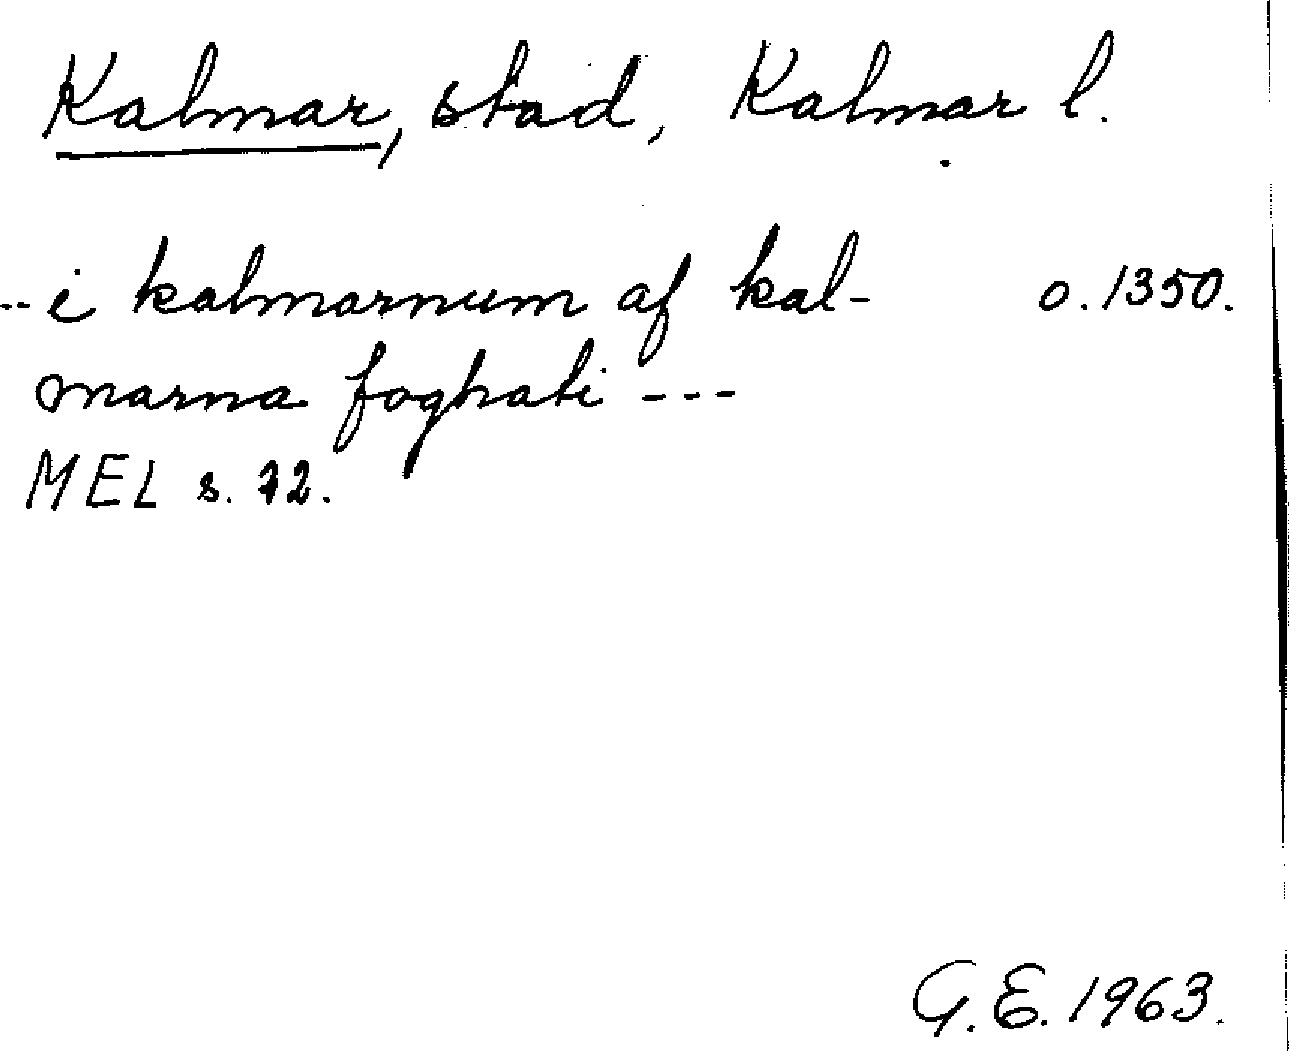 Kalmar, stad, Kalmar l.
-- i kalmarnum af kal- o. 1350.
marna foghati ---
MEL s. 72.
G.E. 1963.